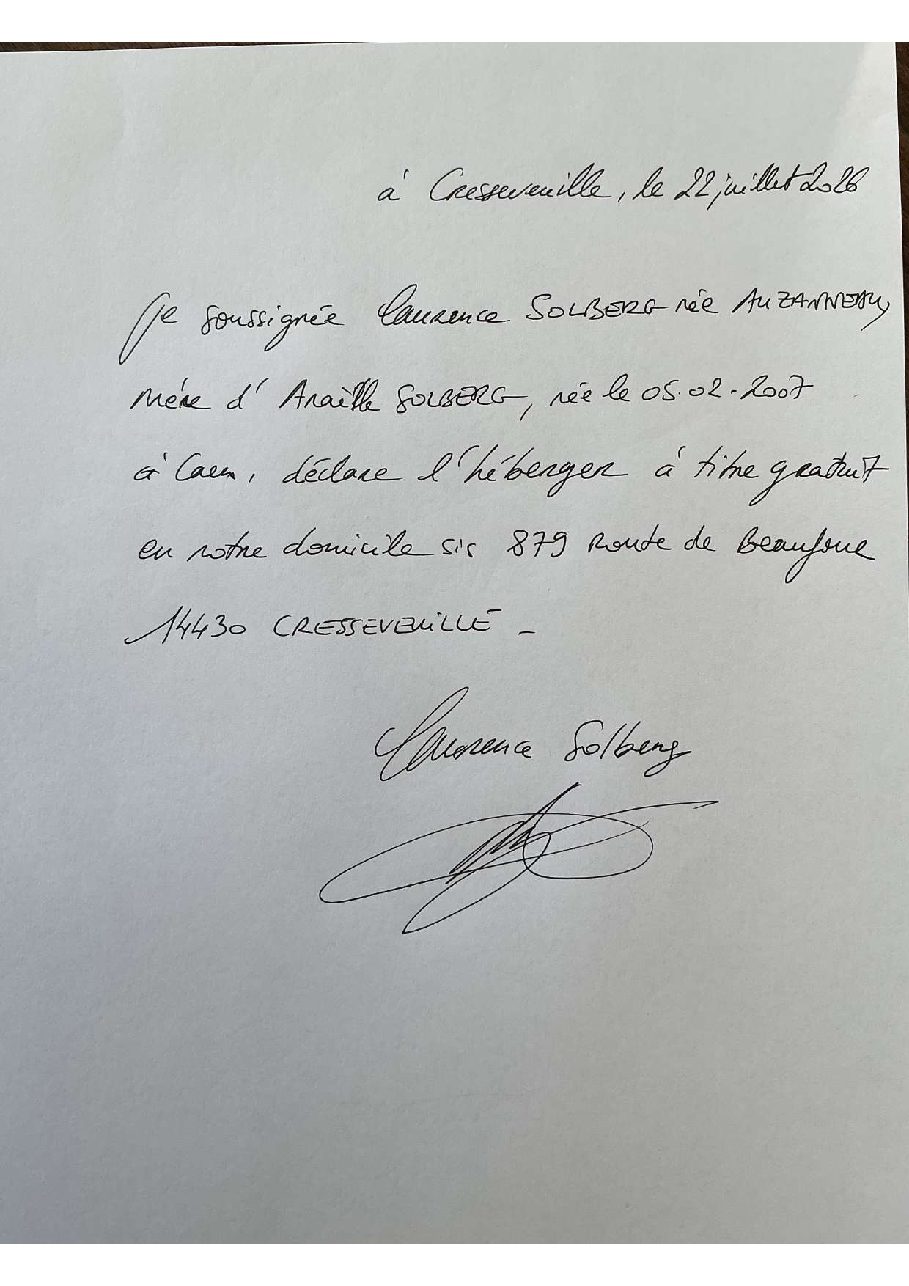 à Cresseveuille, le 22 juillet 2026
Je soussignée Laurence SOLBERG née AUZANNEAU,
mère d' Anaëlle SOLBERG, née le 05.02.2007
à Caen, déclare l'héberger à titre gratuit
en notre domicile sis 879 Route de
14430 CRESSEVEUILLE -
Laurence Solberg